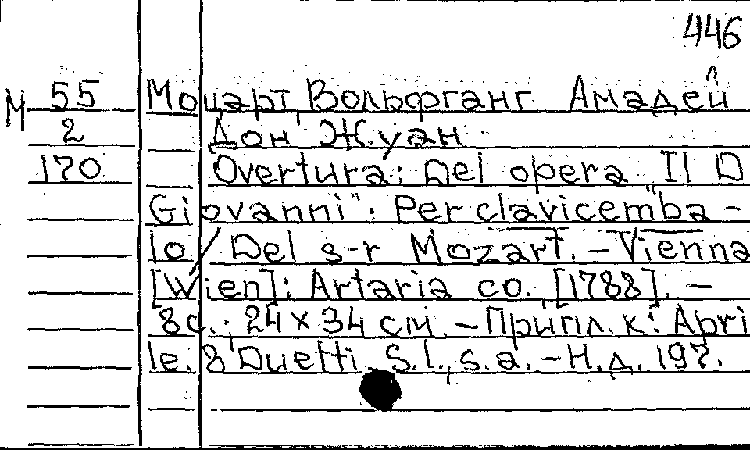 446
М 55 Моцарт, Вольфганг Амадей
2 Дон Жуан
170 Overtura: Del opera "Il D
Giovanni": Per clavicemba-
lo / Del s-r Mozart. - Vienna
[Wien]: Artaria co. [1788]. -
8с.; 24 x 34 см. - Припл. к: Apri
le. 8 Duetti. S.l., s.a. - Н.д. 197.